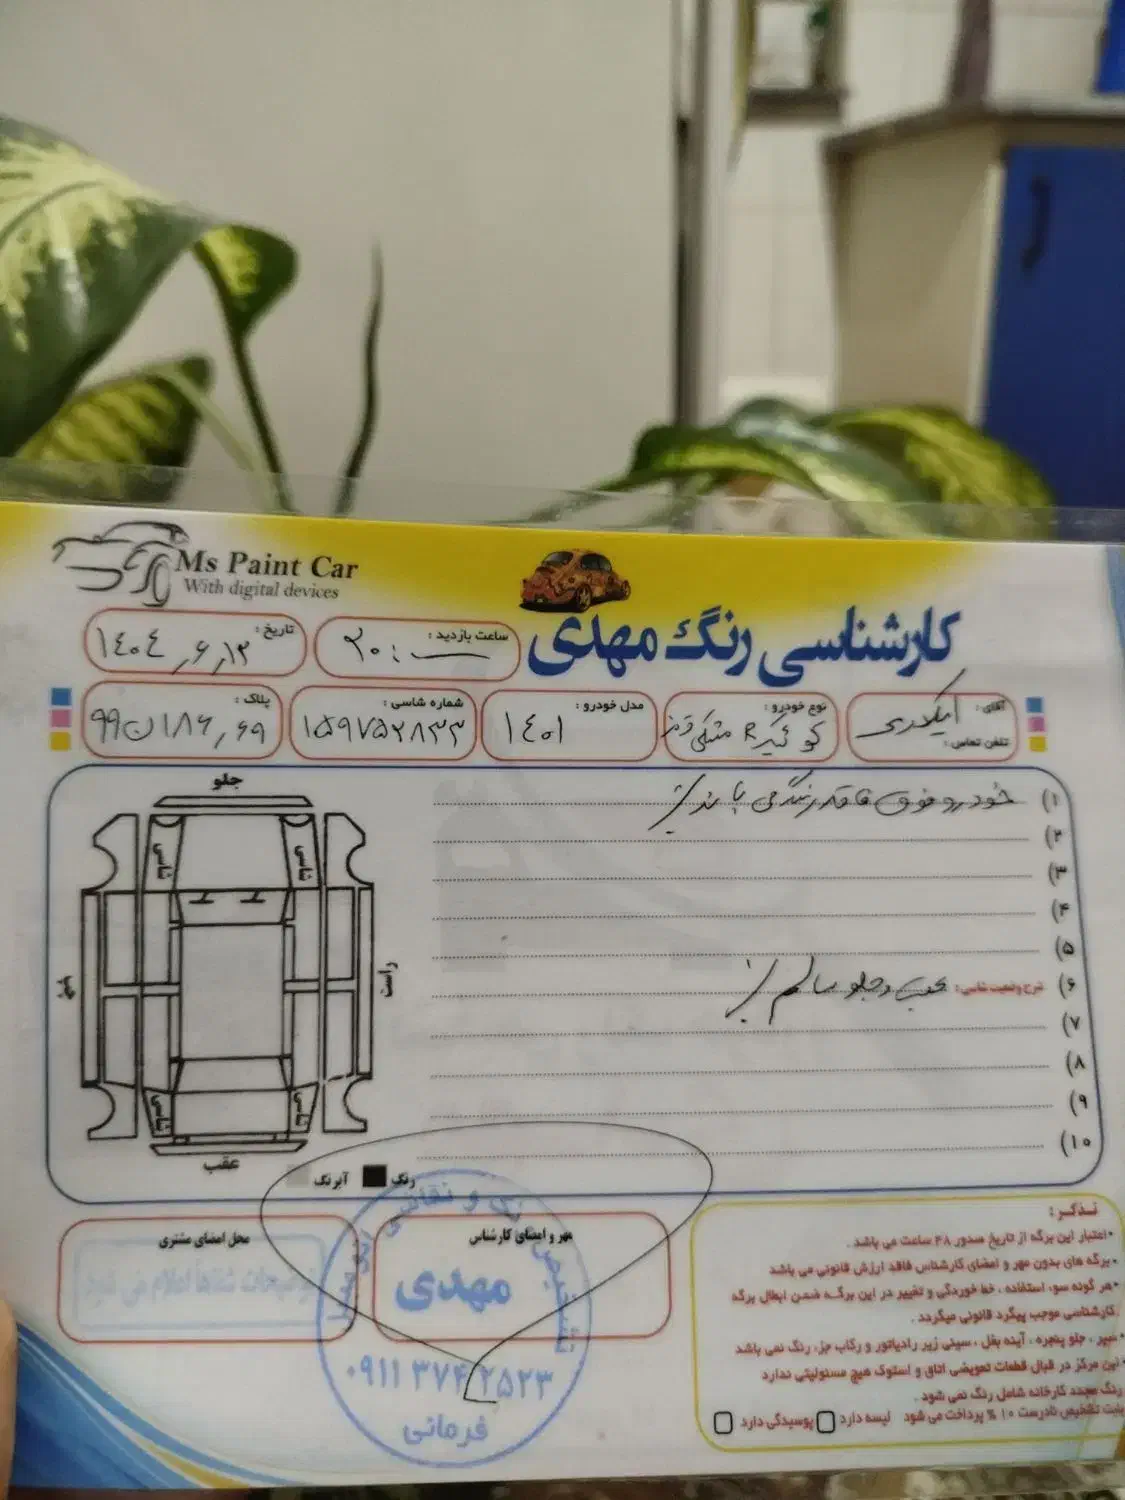 Ms Paint Car
With digital devices
کارشناسی رنگ مهدی
ساعت بازدید : ۲۰:ــ
تاریخ : ۱۴۰۴,۶,۱۲
آقای :
تلفن تماس :
نوع خودرو : کوئیک R مشکی قرمز
مدل خودرو : ۱۴۰۱
شماره شاسی : ۱۵۹۷۵۲۸۳۳
پلاک : ۹۹ن۱۸۶,۶۹
جلو
شاسی شاسی
چپ
راست
شاسی شاسی
عقب
رنگ
آبرنگ
۱) خودرو فوق فاقد رنگ می باشد
۲)
۳)
۴)
۵)
۶) شرح وضعیت شاسی : عقب و جلو سالم
۷)
۸)
۹)
۱۰)
مهر و امضای کارشناس
محل امضای مشتری
توضیحات شفاهاً اعلام می شود
تشخیص رنگ و نقاشی
مهدی
۰۹۱۱ ۳۷۴ ۲۵۲۳
فرمانی
تذکر :
•اعتبار این برگه از تاریخ صدور ۴۸ ساعت می باشد .
•برگه های بدون مهر و امضای کارشناس فاقد ارزش قانونی می باشد
•هر گونه سوء استفاده ، خط خوردگی و تغییر در این برگه ضمن ابطال برگه
کارشناسی موجب پیگرد قانونی میگردد .
•سپر ، جلو پنجره ، آینه بغل ، سینی زیر رادیاتور و رکاب جزء رنگ نمی باشد
•این مرکز در قبال قطعات تعویضی اتاق و استوک هیچ مسئولیتی ندارد
رنگ مجدد کارخانه شامل رنگ نمی شود .
بابت تشخیص نادرست ۱۰ % پرداخت می شود لیسه دارد پوسیدگی دارد